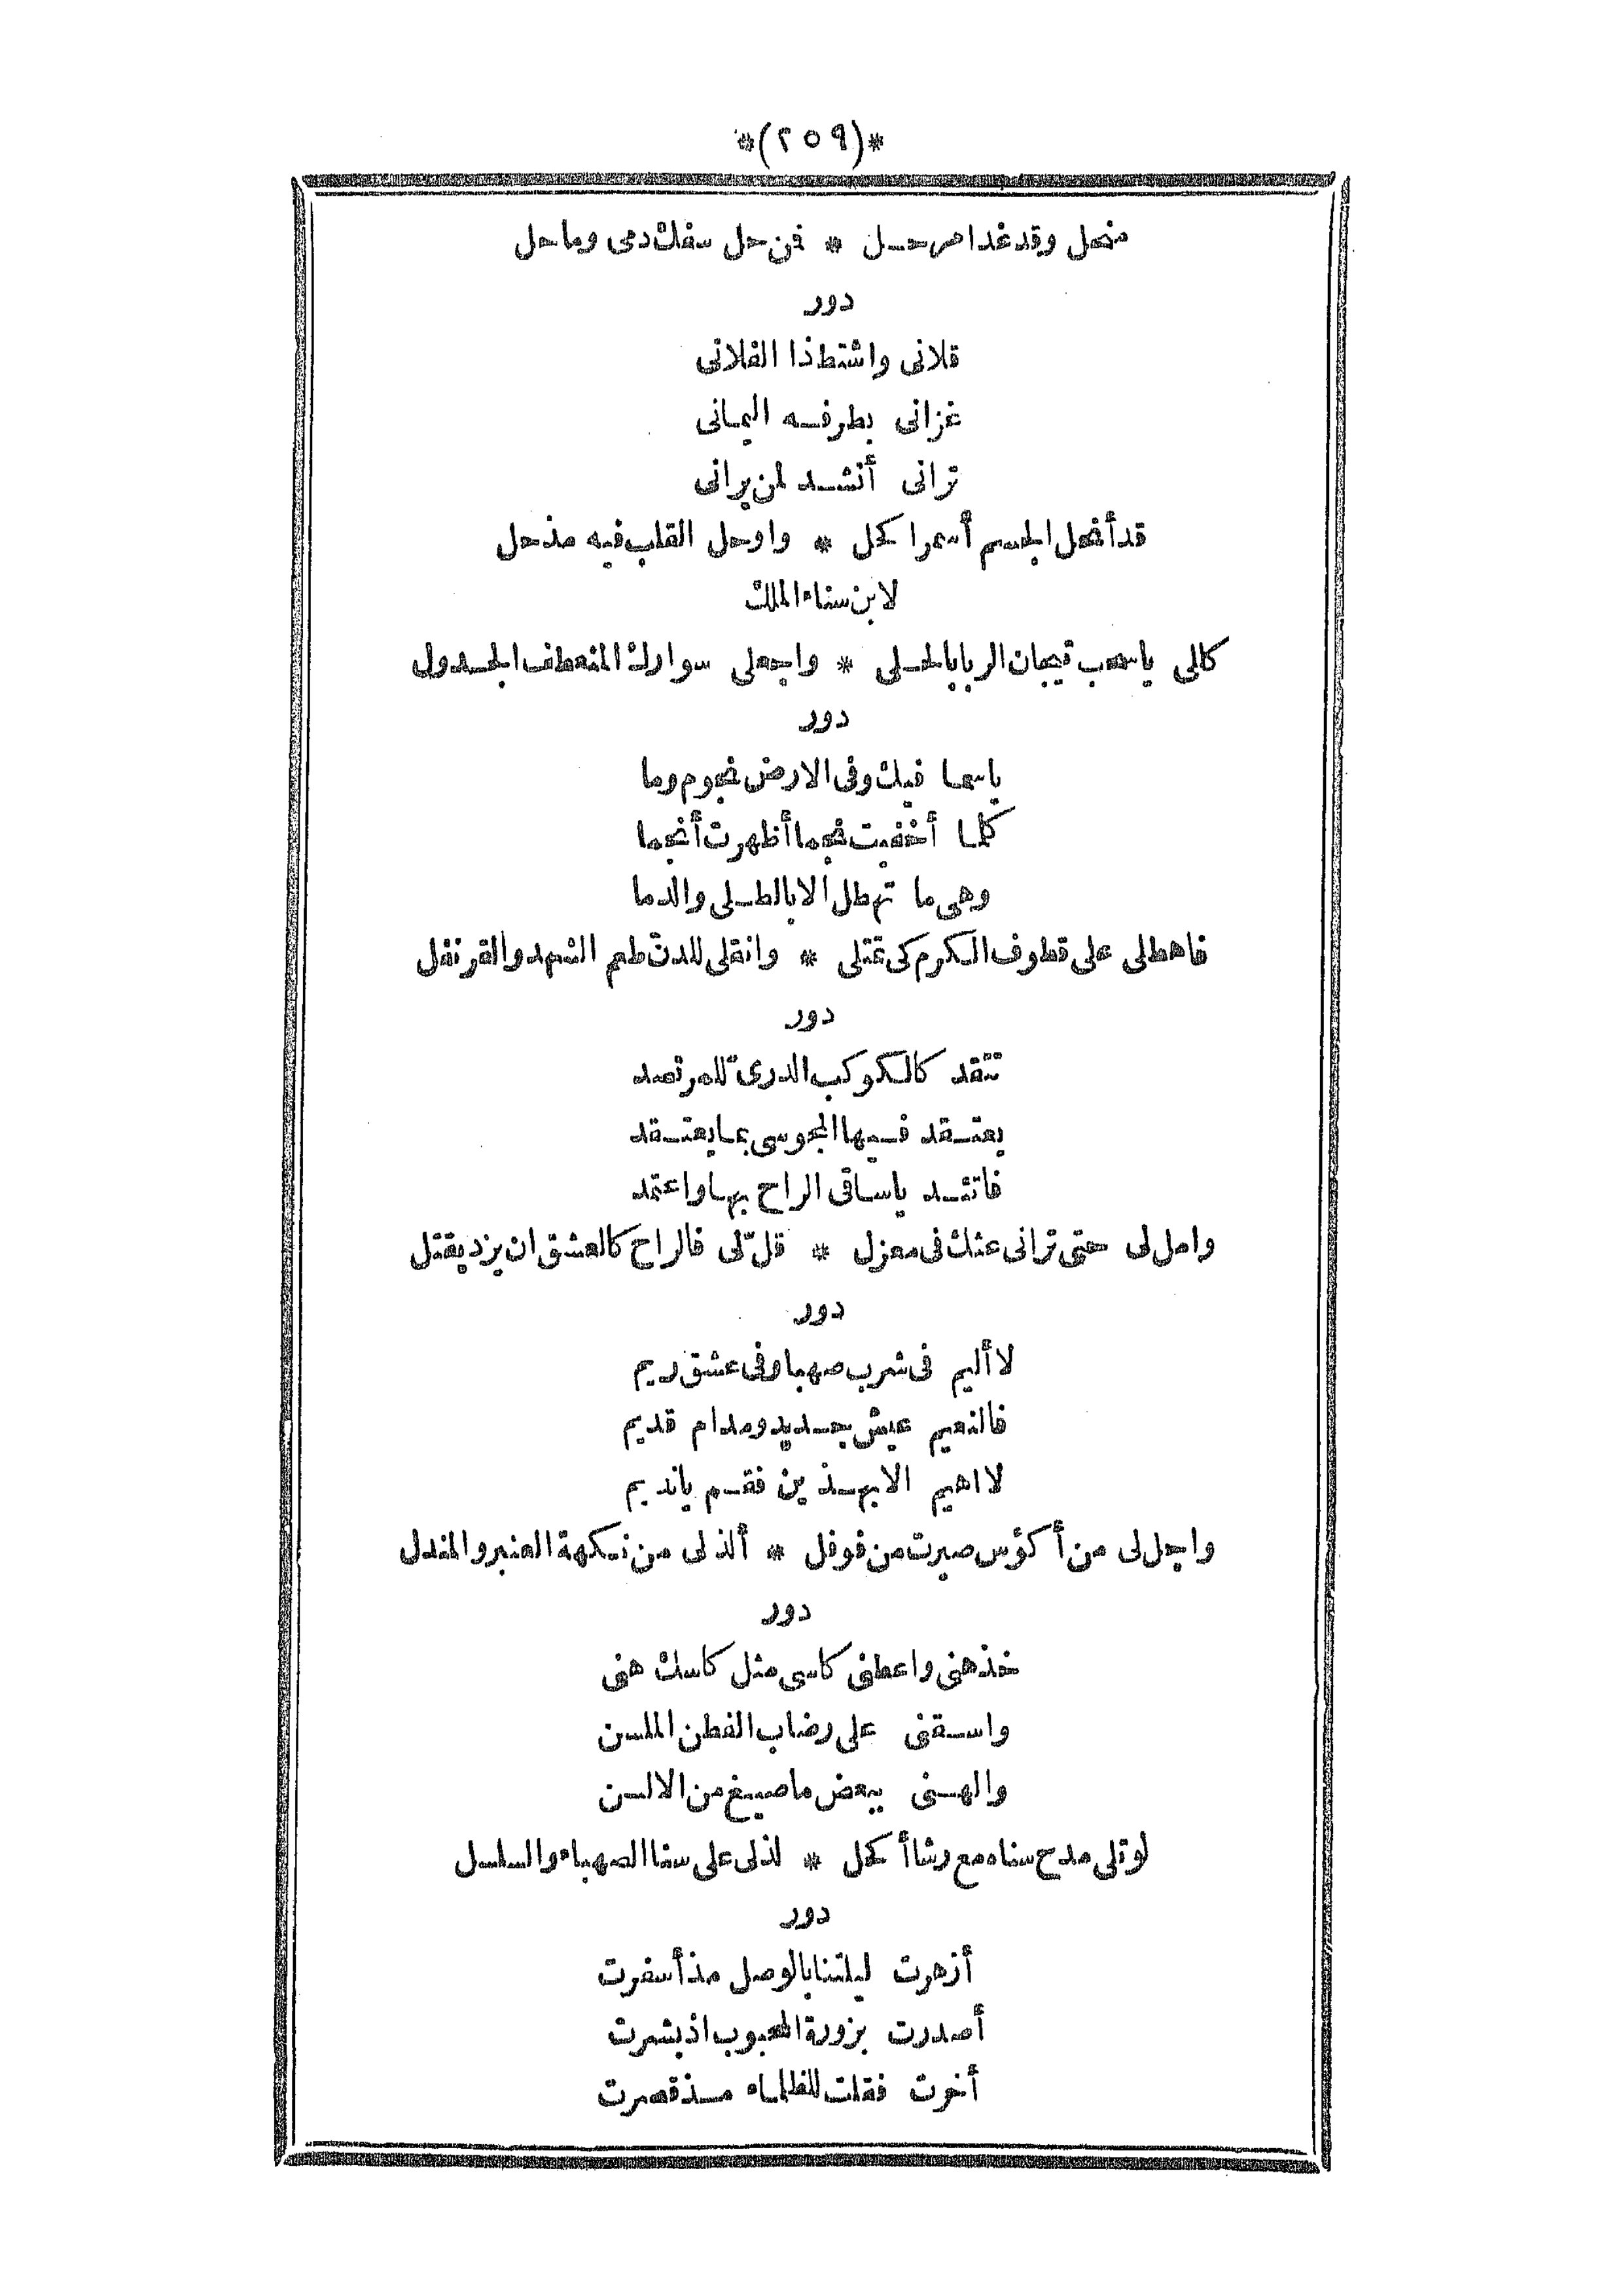 *(٢٥٩)*
منحل وقد غدا مرحل * فمن حل سفك دمى وما حل
دور
قلانى واشتط ذا الفلانى
غزانى بطرفه اليمانى
ترانى أنشد لمن يرانى
قد أنحل الجسم أسمر اكحل * واوحل القلب فيه مذ حل
لابن سناء الملك
كللى ياسحب تيجان الربا بالحلى * واجعلى سوارك المنعطف الجدول
دور
ياسما فيك وفى الارض نجوم وما
كلما أخفيت نجما أظهرت أنجما
وهى ما تهطل الا بالطلى والدما
فاهطلى على قطوف الكرم كى تمتلى * وانقلى للدن طعم الشهد والقرنفل
دور
تتقد كالكوكب الدرىّ للمرتصد
يعتقد فيها المجوسى بما يعتقد
فاتئد ياساقى الراح بها واعتمد
وامل لى حتى ترانى عنك فى معزل * قلّ لى فالراح كالعشق ان يزد يقتل
دور
لا أليم فى شرب صهبا وفى عشق ريم
فالنعيم عيش جديد ومدام قديم
لا اهيم الا بهذين فقم يانديم
واجل لى من أكؤس صيرت من فوفل * ألذ لى من نكهة العنبر والمندل
دور
خذ هنى واعطنى كاسى مثل كاسك هنى
واسقنى على رضاب الفطن الملسن
والهنى ببعض ما صيغ من الالسن
لو تلى مدح سناه مع رشا أكحل * لذ لى على سنا الصهباء والسلسل
دور
أزهرت ليلتنا بالوصل مذ أسفرت
أصدرت بزورة المحبوب اذ بشرت
أخرت فقلت للظلماء مذ قصرت